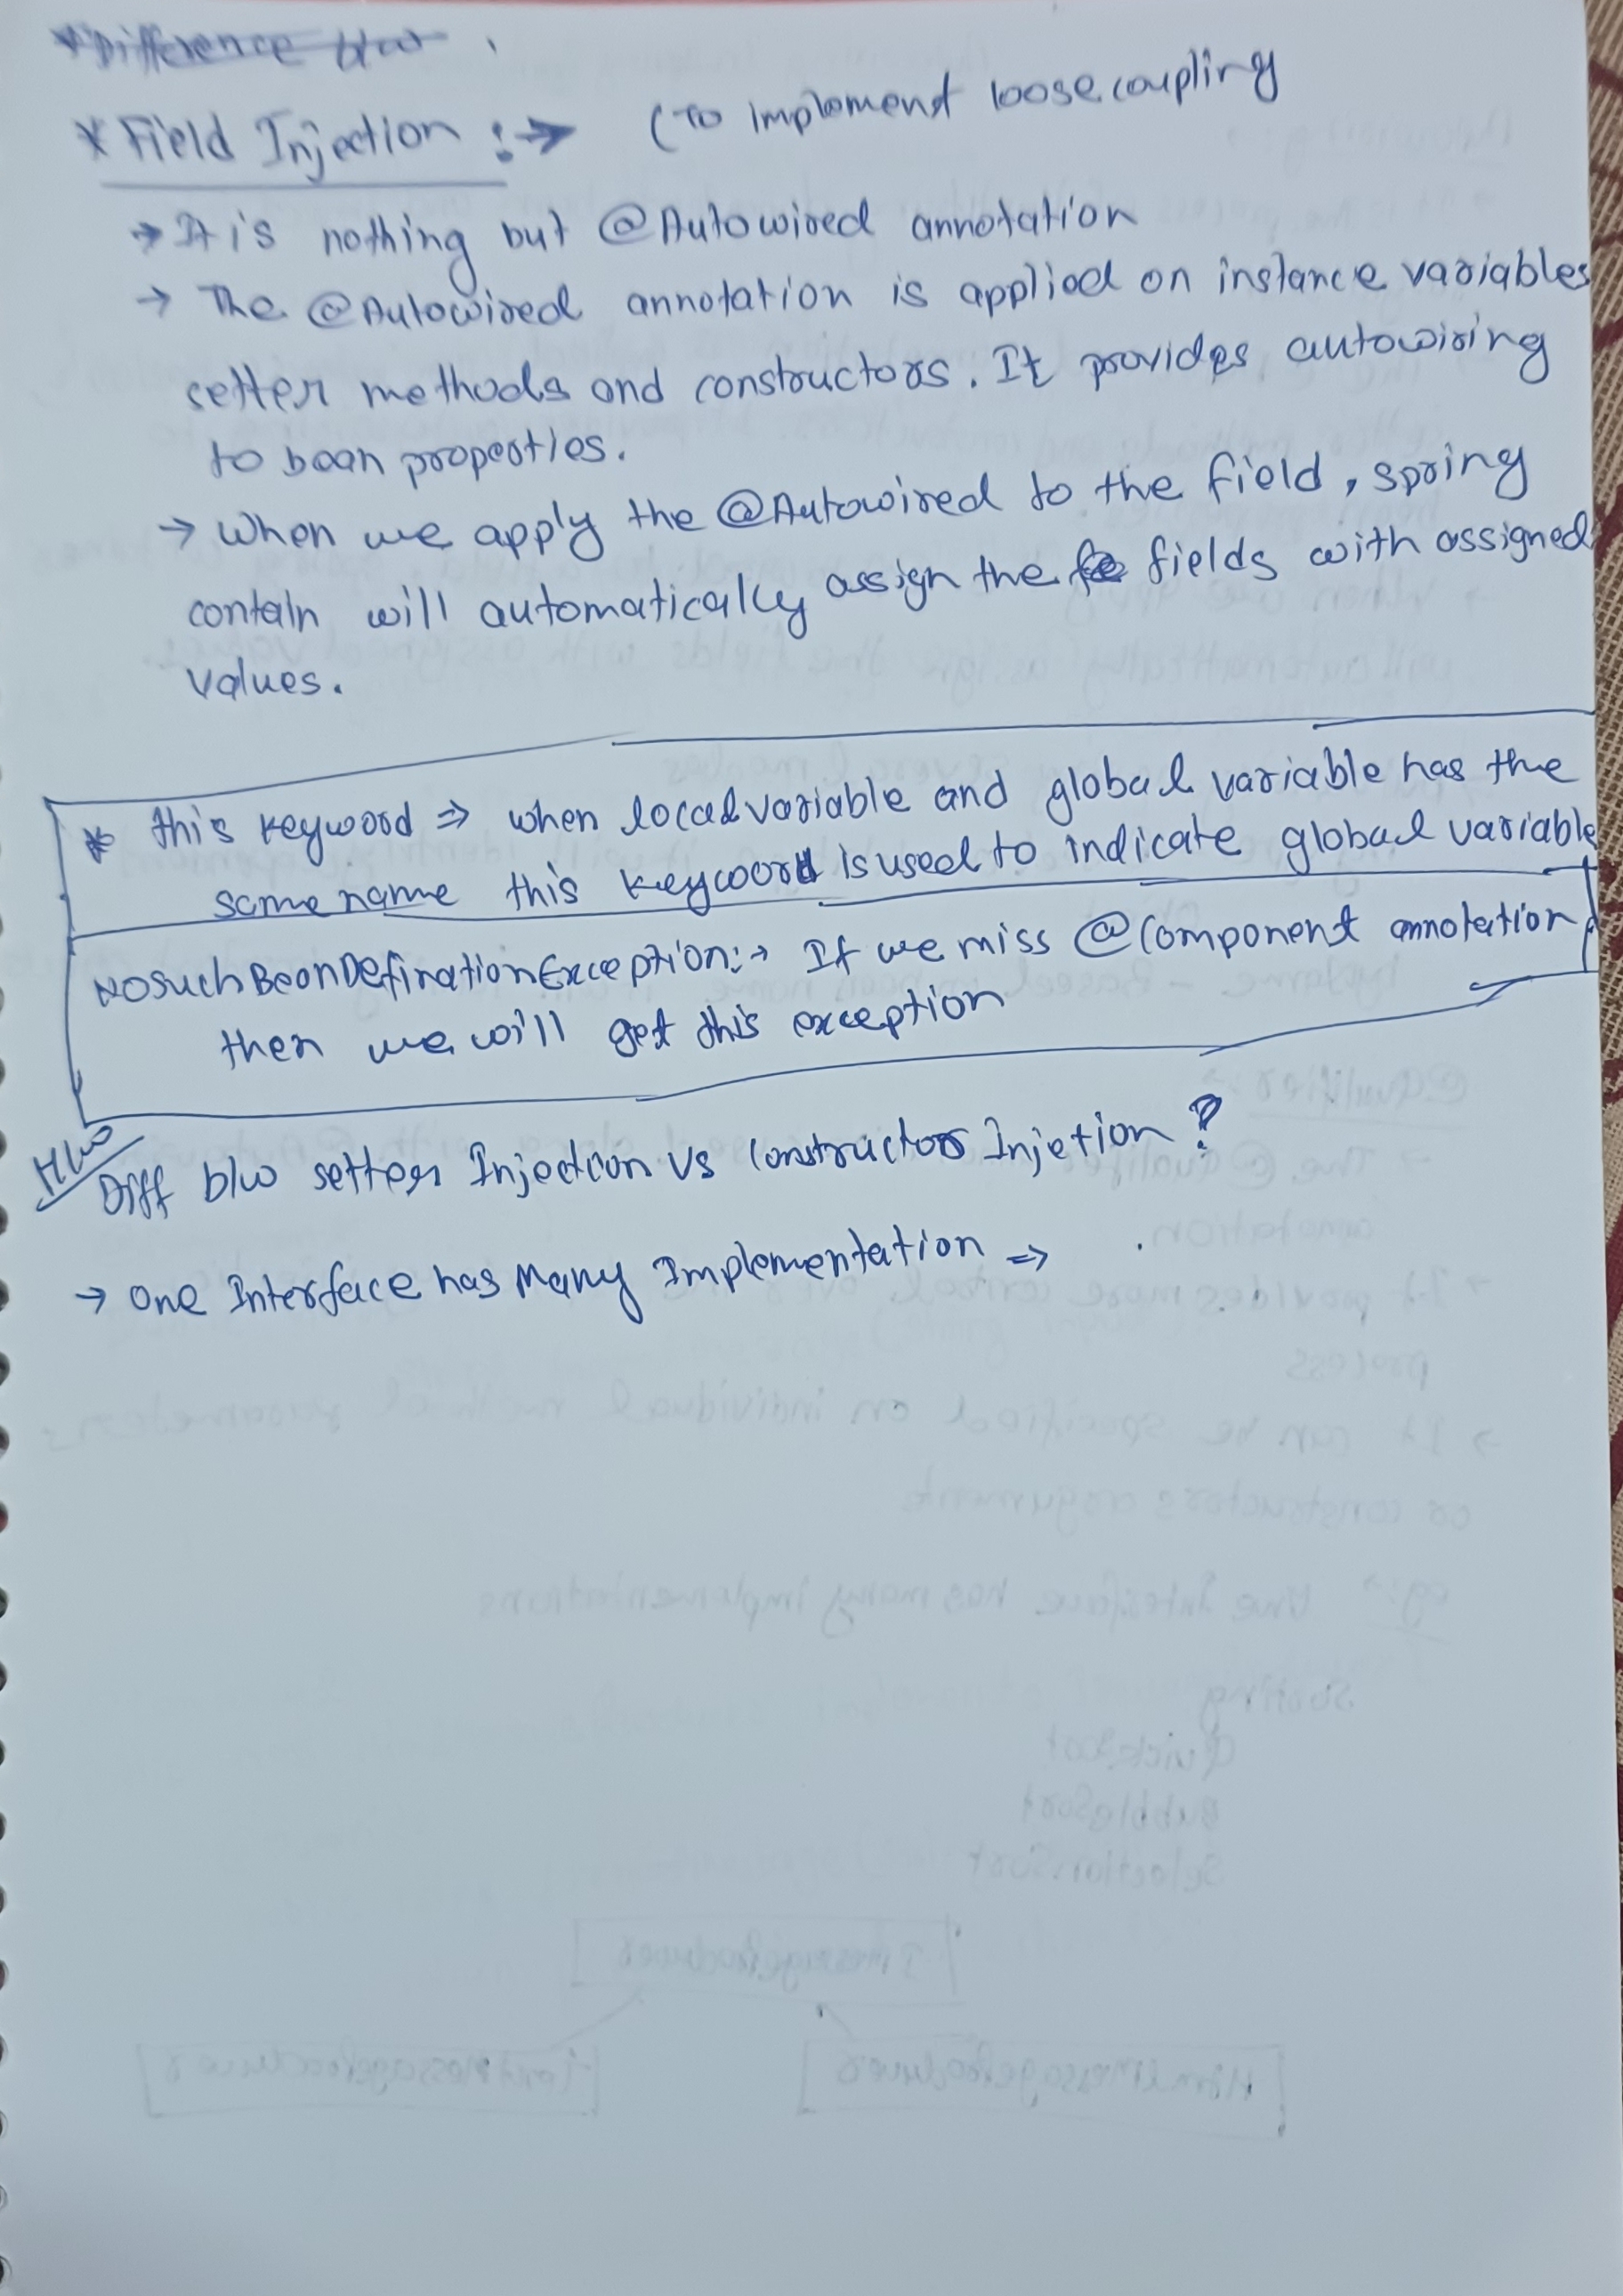 *Difference b/w
* Field Injection :→ (To implement loose coupling
→ It is nothing but @Autowired annotation
→ The @Autowired annotation is applied on instance variables
setter methods and constructors. It provides autowiring
to bean properties.
→ when we apply the @Autowired to the field, spring
contain will automatically assign the fields with assigned
values.
* this keyword ⇒ when local variable and global variable has the
same name this keyword is used to indicate global variable
NoSuchBeanDefinationException:→ If we miss @Component annotation
then we will get this exception
HW
Diff b/w setter Injection vs Constructor Injetion ?
→ One Interface has Many Implementation ⇒